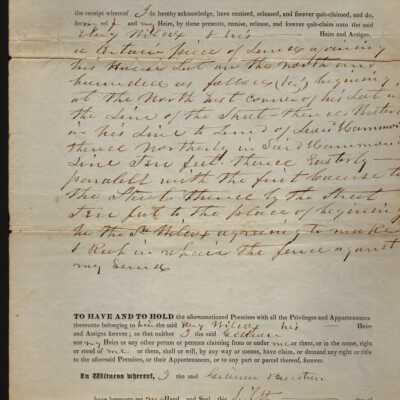 the receipt whereof I do hereby acknowledge, have remised, released, and forever quit-claimed, and do,
for me and my Heirs, by these presents, remise, release, and forever quit-claim unto the said
Wilcox & his Heirs and Assigns
a certain piece of Land adjoining
his House Lot on the North and
bounded as follows (viz) beginning
at the North East corner of his Lot in
the Line of the Street thence Westerly
in his Line to Land of Hammon
thence Northerly in Said Hammon
Line Ten feet thence Easterly
paralell with the first Course to
the Street thence by the Street
Ten feet to the place of beginning
he the Sd Wilcox agreeing to make
& Keep in repair the fence against
my Land
TO HAVE AND TO HOLD the aforementioned Premises with all the Privileges and Appurtenances
thereunto belonging to him the said Wilcox his Heirs
and Assigns forever; so that neither I the said
nor my Heirs or any other person or persons claiming from or under me or them, or in the name, right
or stead of me or them, shall or will, by any way or means, have, claim, or demand any right or title
to the aforesaid Premises, or their Appurtenances, or to any part or parcel thereof, forever.
In Witness whereof, I the said
have hereunto set my Hand and Seal, this